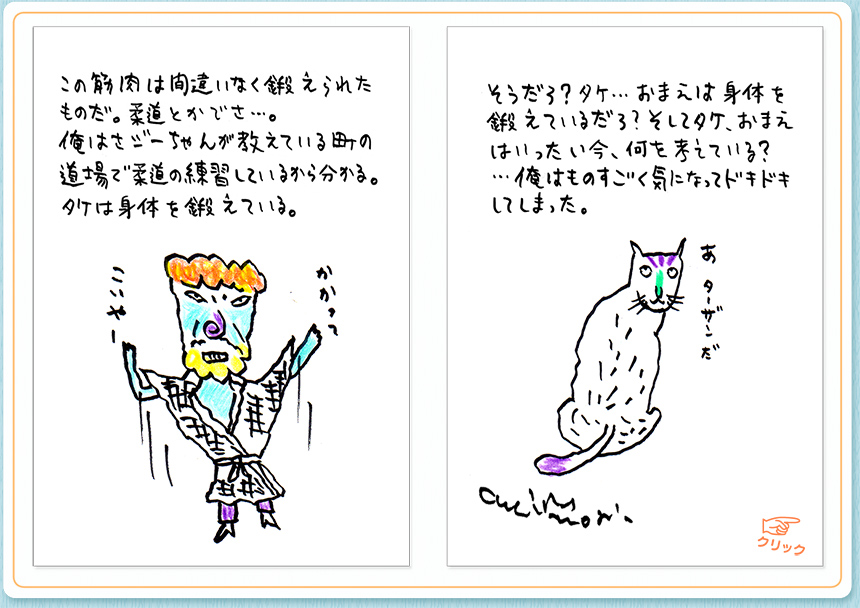 この筋肉は間違いなく鍛えられた
ものだ。柔道とかでさ…。
俺はさジーちゃんが教えている町の
道場で柔道の練習しているから分かる。
タケは身体を鍛えている。
かかって
こいやー
そうだろ？タケ…おまえは身体を
鍛えているだろ？そしてタケ、おまえ
はいったい今、何を考えている？
…俺はものすごく気になってドキドキ
してしまった。
あ ターザンだ
クリック